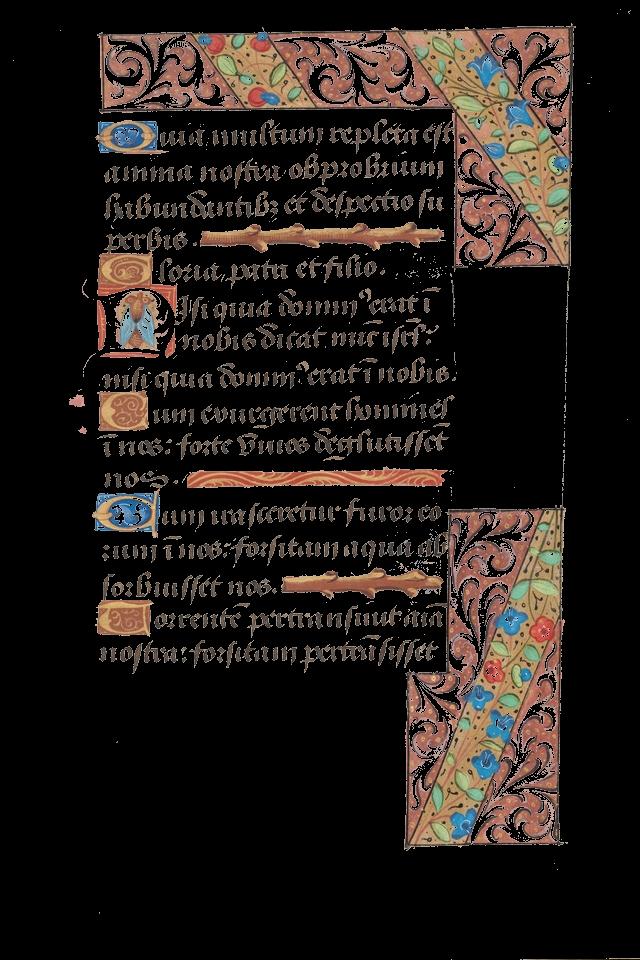 Quia multum repleta est
anima nostra obprobrium
habundantibꝫ et despectio su
perbis.
Gloria patri et filio.
Nisi quia dominꝰ erat ī
nobis dicat nūc isrl̄:
nisi quia dominꝰ erat ī nobis.
Cum exurgerent homines
ī nos: forte viuos deglutisset
nos.
Cum irasceretur furor eo
rum ī nos: forsitam aqua ab
sorbuisset nos.
Torrentē pertransiuit aīa
nostra: forsitam pertrāsisset